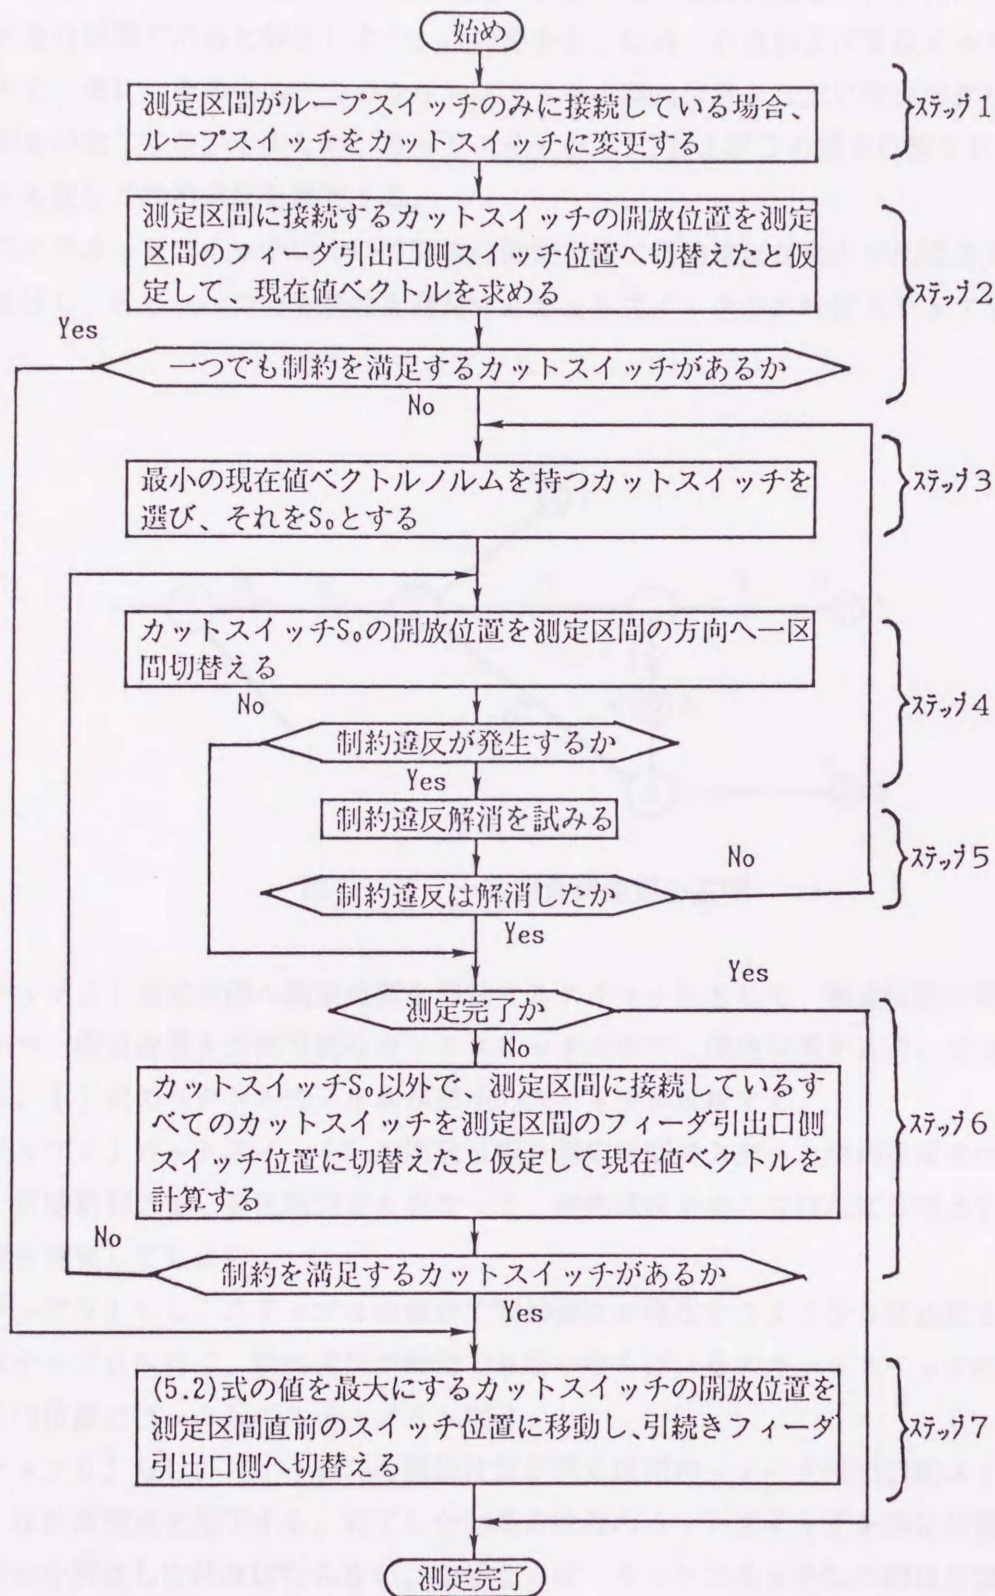 始め
測定区間がループスイッチのみに接続している場合、
ループスイッチをカットスイッチに変更する
ステップ1
測定区間に接続するカットスイッチの開放位置を測定
区間のフィーダ引出口側スイッチ位置へ切替えたと仮
定して、現在値ベクトルを求める
ステップ2
Yes
一つでも制約を満足するカットスイッチがあるか
No
最小の現在値ベクトルノルムを持つカットスイッチを
選び、それをS₀とする
ステップ3
カットスイッチS₀の開放位置を測定区間の方向へ一区
間切替える
ステップ4
No
制約違反が発生するか
Yes
制約違反解消を試みる
ステップ5
No
制約違反は解消したか
Yes
Yes
測定完了か
No
カットスイッチS₀以外で、測定区間に接続しているす
べてのカットスイッチを測定区間のフィーダ引出口側
スイッチ位置に切替えたと仮定して現在値ベクトルを
計算する
ステップ6
No
制約を満足するカットスイッチがあるか
Yes
(5.2)式の値を最大にするカットスイッチの開放位置を
測定区間直前のスイッチ位置に移動し、引続きフィーダ
引出口側へ切替える
ステップ7
測定完了